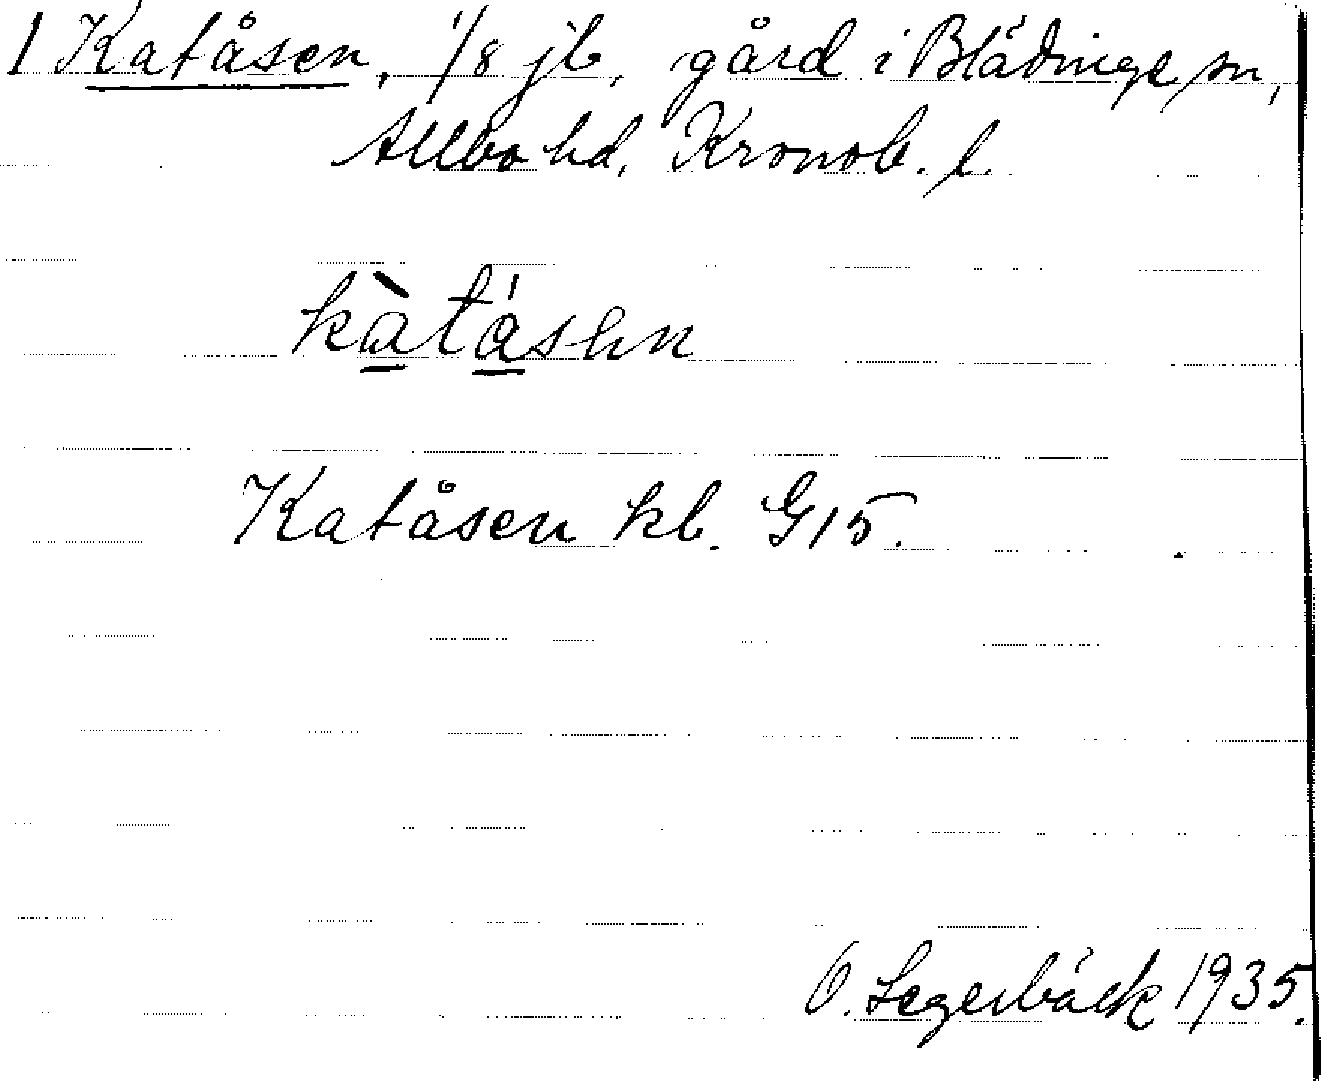 1 Katåsen, 1/8 jb, gård i Blädinge sn,
Allbo hd, Kronob. l.
kàtásən
Katåsen kb. G15.
O. Segerbäck 1935.